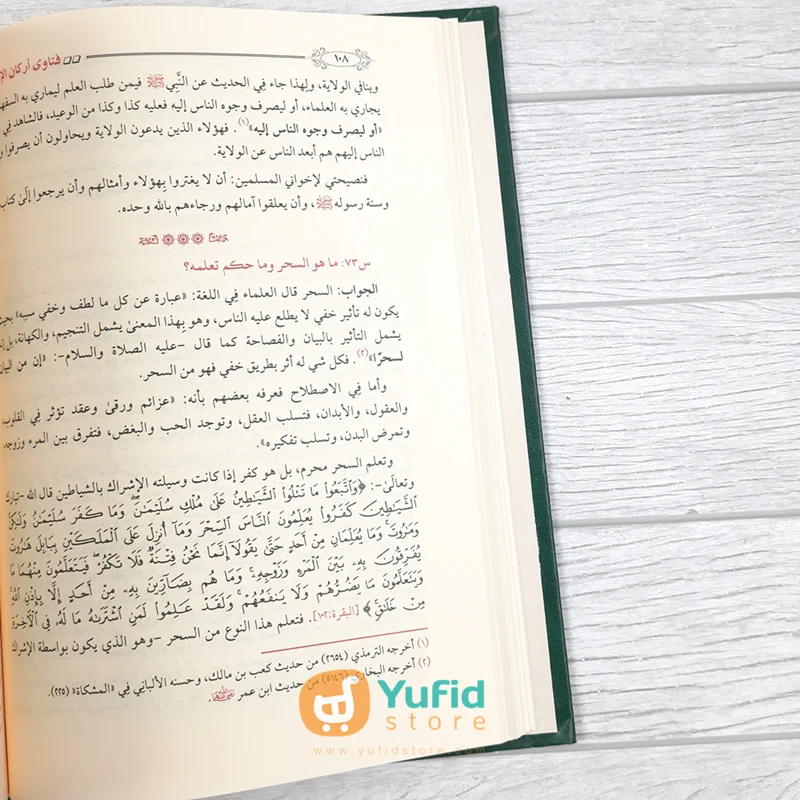 ١٠٨
فتاوى أركان
وينافي الولاية، ولهذا جاء في الحديث عن النَّبي ﷺ فيمن طلب العلم ليماري به
يجاري به العلماء، أو ليصرف وجوه الناس إليه فعليه كذا وكذا من الوعيد، فالشاهد في
«أو ليصرف وجوه الناس إليه»(١). فهؤلاء الذين يدعون الولاية ويحاولون أن يصرفوا
الناس إليهم هم أبعد الناس عن الولاية.
فنصيحتي لإخواني المسلمين: أن لا يغتروا بهؤلاء وأمثالهم وأن يرجعوا إلَى كتاب
وسنة رسوله ﷺ، وأن يعلقوا آمالهم ورجاءهم بالله وحده.
س٧٣: ما هو السحر وما حكم تعلمه؟
الجواب: السحر قال العلماء في اللغة: «عبارة عن كل ما لطف وخفي سببه» بحيث
يكون له تأثير خفي لا يطلع عليه الناس، وهو بهذا المعنى يشمل التنجيم، والكهانة، بل
يشمل التأثير بالبيان والفصاحة كما قال -عليه الصلاة والسلام-: «إن من البيان
لسحرًا»(٢). فكل شي له أثر بطريق خفي فهو من السحر.
وأما في الاصطلاح فعرفه بعضهم بأنه: «عزائم ورقى وعقد تؤثر في القلوب،
والعقول، والأبدان، فتسلب العقل، وتوجد الحب والبغض، فتفرق بين المرء وزوجه،
وتمرض البدن، وتسلب تفكيره».
وتعلم السحر محرم، بل هو كفر إذا كانت وسيلته الإشراك بالشياطين قال الله -تبارك
وتعالى-: ﴿وَٱتَّبَعُواْ مَا تَتْلُواْ ٱلشَّيَٰطِينُ عَلَىٰ مُلْكِ سُلَيْمَٰنَ ۖ وَمَا كَفَرَ سُلَيْمَٰنُ وَلَٰكِنَّ
ٱلشَّيَٰطِينَ كَفَرُواْ يُعَلِّمُونَ ٱلنَّاسَ ٱلسِّحْرَ وَمَآ أُنزِلَ عَلَى ٱلْمَلَكَيْنِ بِبَابِلَ هَٰرُوتَ
وَمَٰرُوتَ ۚ وَمَا يُعَلِّمَانِ مِنْ أَحَدٍ حَتَّىٰ يَقُولَآ إِنَّمَا نَحْنُ فِتْنَةٌ فَلَا تَكْفُرْ ۖ فَيَتَعَلَّمُونَ مِنْهُمَا مَا
يُفَرِّقُونَ بِهِۦ بَيْنَ ٱلْمَرْءِ وَزَوْجِهِۦ ۚ وَمَا هُم بِضَآرِّينَ بِهِۦ مِنْ أَحَدٍ إِلَّا بِإِذْنِ ٱللَّهِ ۚ
وَيَتَعَلَّمُونَ مَا يَضُرُّهُمْ وَلَا يَنفَعُهُمْ ۚ وَلَقَدْ عَلِمُواْ لَمَنِ ٱشْتَرَىٰهُ مَا لَهُۥ فِى ٱلْءَاخِرَةِ
مِنْ خَلَٰقٍ ۚ﴾ [البقرة:١٠٢]. فتعلم هذا النوع من السحر -وهو الذي يكون بواسطة الإشراك
(١) أخرجه الترمذي (٢٦٥٤) من حديث كعب بن مالك، وحسنه الألباني في «المشكاة» (٢٢٥).
(٢) أخرجه البخاري (٥١٤٦) من حديث ابن عمر
Yufid
store
www.yufidstore.com